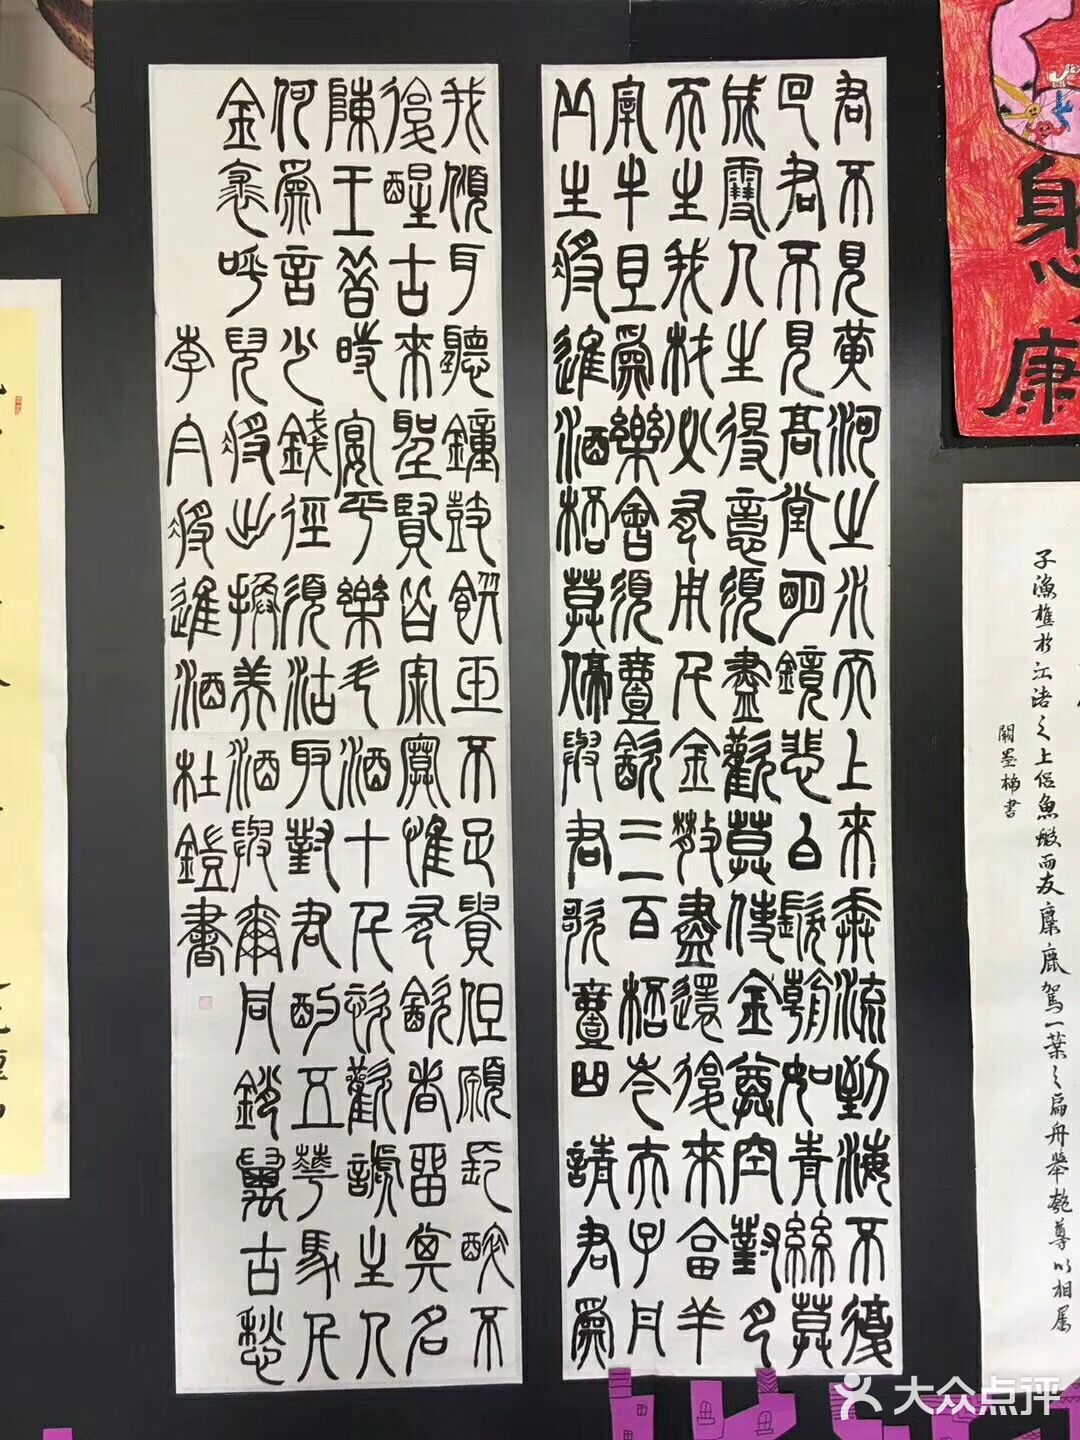 君不見黃河之水天上來奔流到海不復
回君不見高堂明鏡悲白髮朝如青絲莫
成雪人生得意須盡歡莫使金尊空對月
天生我材必有用千金散盡還復來亯羊
宰牛且爲樂會須壹飲三百杯岑夫子丹
丘生將進酒杯莫停與君歌壹曲請君爲
我傾耳聽鐘鼓饌玉不足貴但願長醉不
復醒古來聖賢皆寂寞惟有飲者留其名
陳王昔時宴平樂斗酒十千恣歡謔主人
何爲言少錢徑須沽取對君酌五華馬千
金裘呼兒將出換美酒與爾同銷萬古愁
李白將進酒杜鎧書
身心
康
子漁樵於江渚之上侶魚蝦而友麋鹿駕一葉之扁舟舉匏尊以相屬
大众点评